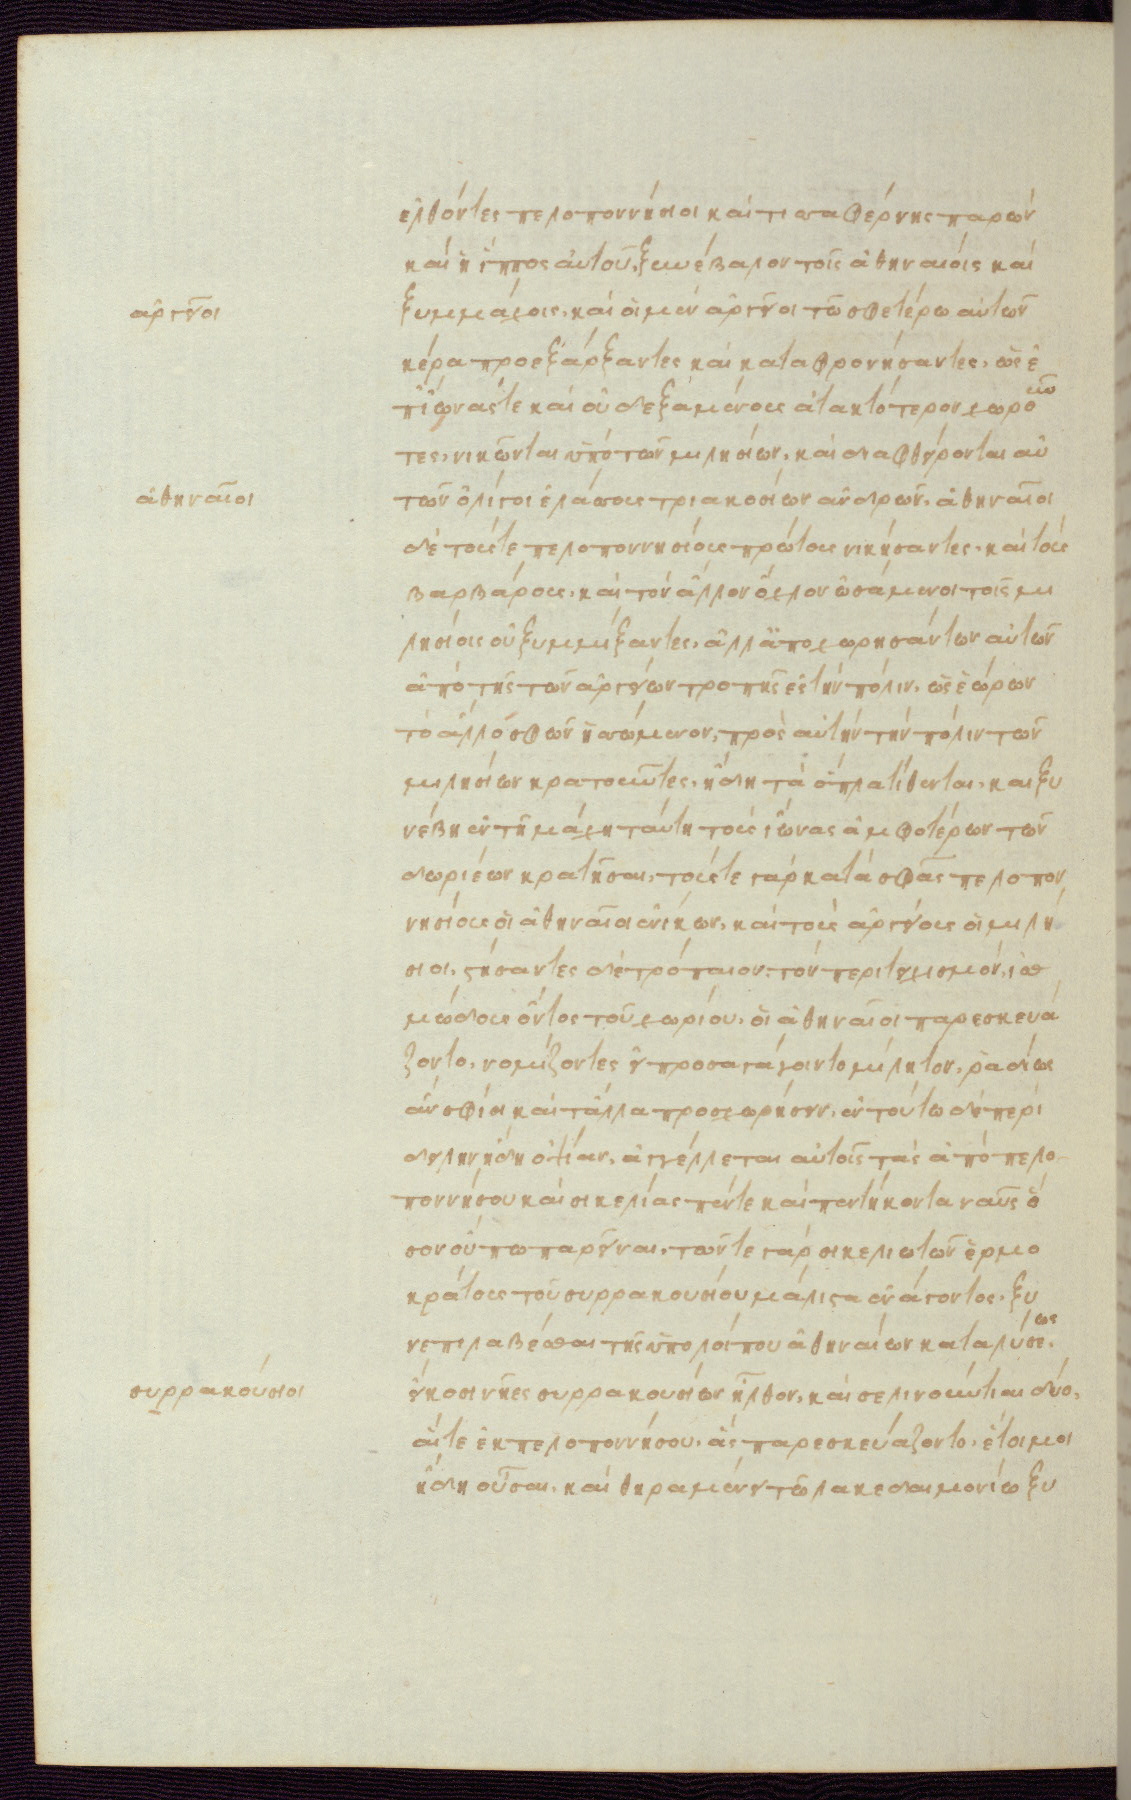 ελθόντες πελοποννήσιοι καὶ τισσαφέρνης παρὼν
καὶ ἡ ἵππος αὐτοῦ, ξυνέβαλον τοῖς ἀθηναίοις καὶ
ἀργεῖοι
ξυμμάχοις, καὶ οἱ μὲν ἀργεῖοι τῶ σφετέρω αὐτῶν
κέρα προεξάρξαντες καὶ καταφρονήσαντες, ὡς ἐ
π' ἴωνάς τε καὶ οὐ δεξαμένους ἀτακτότερον χωροῦν
τες, νικῶνται ὑπὸ τῶν μιλησίων, καὶ διαφθείρονται αὐ
ἀθηναῖοι
τῶν ὀλίγοι ἐλάσσους τριακοσίων ἀνδρῶν, ἀθηναῖοι
δὲ τούς τε πελοποννησίους πρώτους νικήσαντες, καὶ τοὺς
βαρβάρους, καὶ τὸν ἄλλον ὄχλον ὠσάμενοι τοῖς μι
λησίοις οὐ ξυμμίξαντες, ἀλλ' ἀποχωρησάντων αὐτῶν
ἀπὸ τῆς τῶν ἀργείων τροπῆς ἐς τὴν πόλιν, ὡς ἑώρων
τὸ ἄλλο σφῶν ἡσσώμενον, πρὸς αὐτὴν τὴν πόλιν τῶν
μιλησίων κρατοῦντες, ἤδη τὰ ὅπλα τίθενται, καὶ ξυ
νέβη ἐν τῆ μάχη ταύτη τοὺς ἴωνας ἀμφοτέρων τῶν
δωριέων κρατῆσαι, τούς τε γὰρ κατὰ σφᾶς πελοπον
νησίους οἱ ἀθηναῖοι ἐνίκων, καὶ τοὺς ἀργείους οἱ μιλή
σιοι, στήσαντες δὲ τρόπαιον, τὸν περιτειχισμὸν, ἰσθ
μώδους ὄντος τοῦ χωρίου, οἱ ἀθηναῖοι παρεσκευά
ζοντο, νομίζοντες εἰ προσαγάγοιντο μίλητον, ῥαδίως
ἂν σφίσι καὶ τἄλλα προσχωρήσειν, ἐν τούτω δὲ περὶ
δείλην ἤδη ὀψίαν, ἀγγέλλεται αὐτοῖς τὰς ἀπὸ πελο
ποννήσου καὶ σικελίας πέντε καὶ πεντήκοντα ναῦς ὅ
σον οὔπω παρεῖναι, τῶν τε γὰρ σικελιωτῶν ἑρμο
κράτους τοῦ συρρακουσίου μάλιστα ἐνάγοντος, ξυ
νεπιλαβέσθαι τῆς ὑπολοίπου ἀθηναίων καταλύσεως,
συρρακούσιοι
εἴκοσι νῆες συρρακουσίων ἦλθον, καὶ σελινούντιαι δύο,
αἵ τε ἐκ πελοποννήσου, ἃς παρεσκευάζοντο, ἑτοῖμοι
ἤδη οὖσαι, καὶ θηραμένει τῶ λακεδαιμονίω ξυ